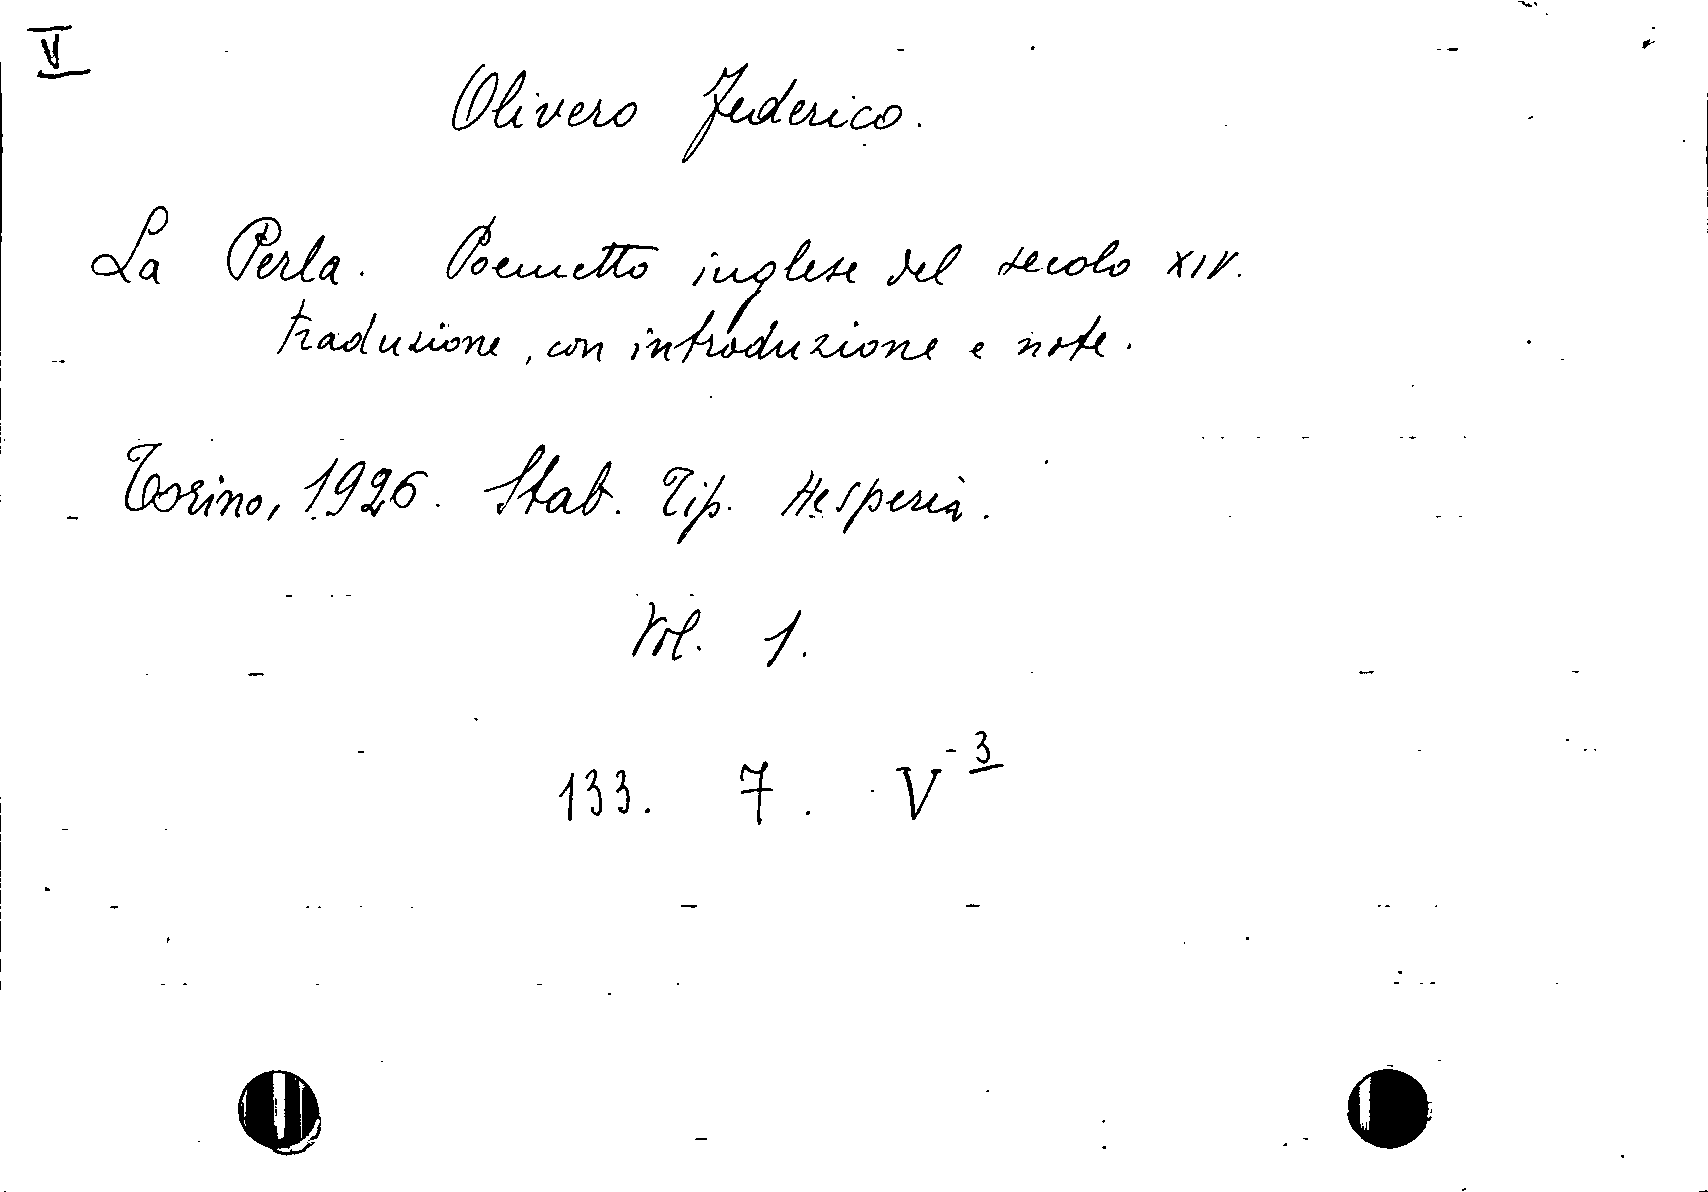 V
Olivero Federico.
La Perla. Poemetto inglese del secolo XIV.
traduzione, con introduzione e note.
Torino, 1926. Stab. Tip. Hesperia.
Vol. 1.
133. 7. V-3